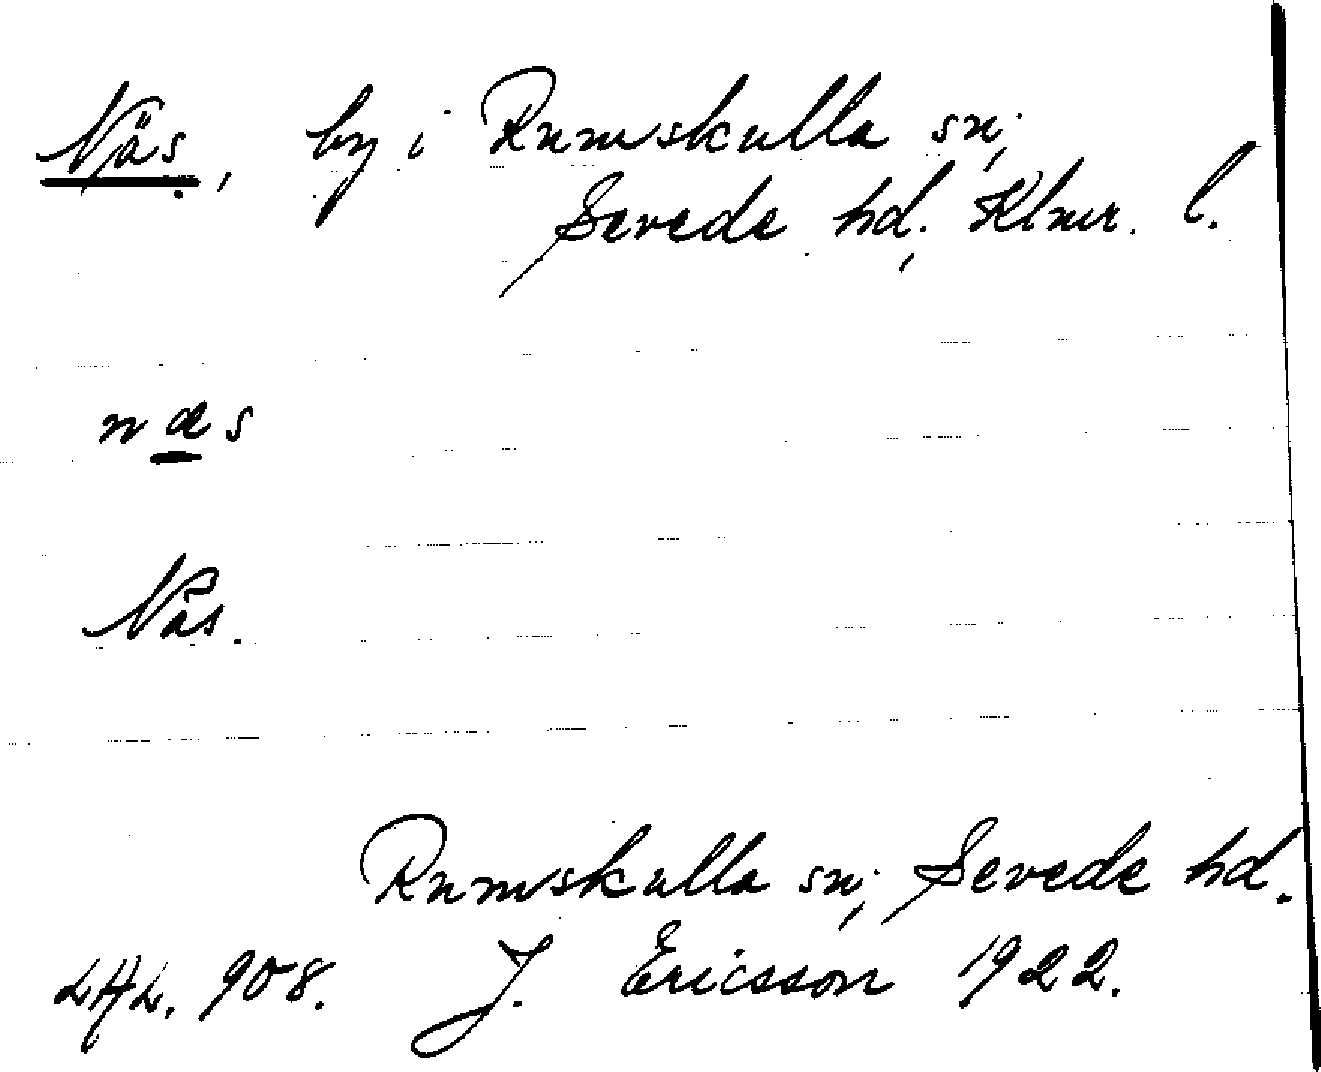 Näs, by i Rumskulla sn,
Sevede hd, Klmr. l.
næs
Näs.
Rumskulla sn, Sevede hd.
LAL. 908. J. Ericsson 1922.